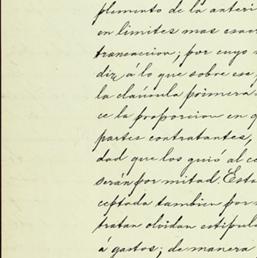 plemento de la anteri
en limites mas exac
transaccion; por cuyo
diz á lo que sobre ese
la cláusula primera
ce la proporcion en q
partes contratantes,
dad que los guió al ce
serán por mitad. Esta
ceptada tambien por
tratan olvidan estipul
á gastos; de manera